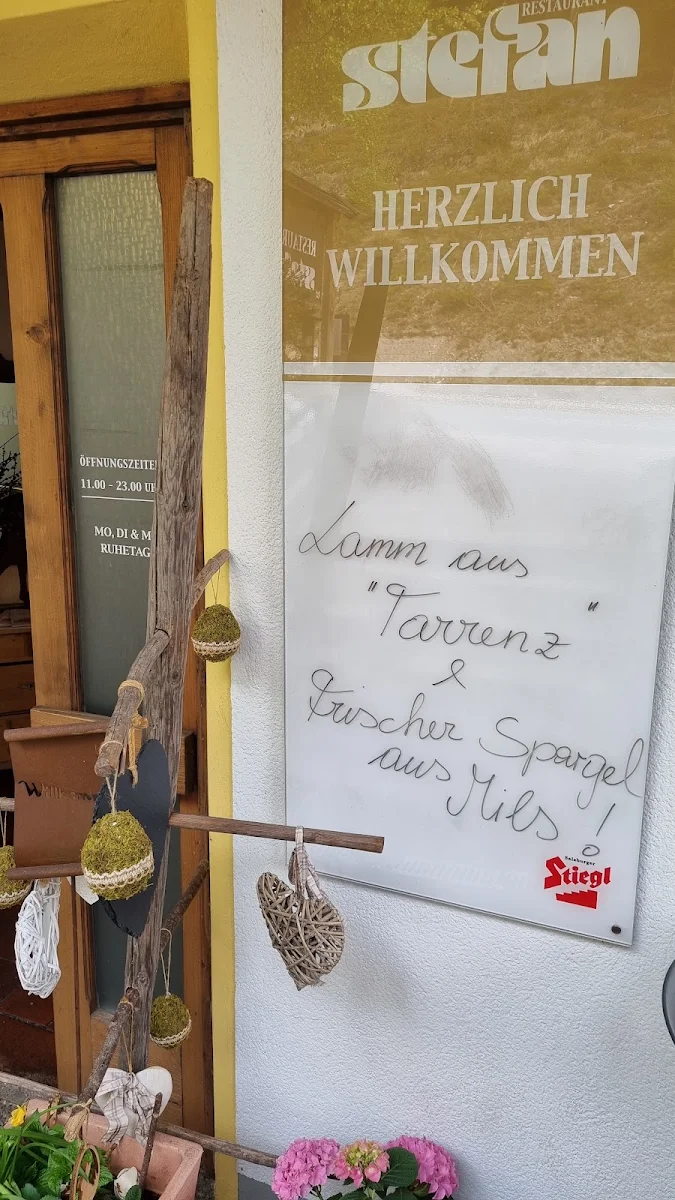 RESTAURANT
stefan
HERZLICH
WILLKOMMEN
ÖFFNUNGSZEITEN
11.00 - 23.00 UH
MO, DI & M
RUHETAG
Lamm aus
"Tarrenz"
&
Frischer Spargel
aus Mils!
Salzburger
Stiegl